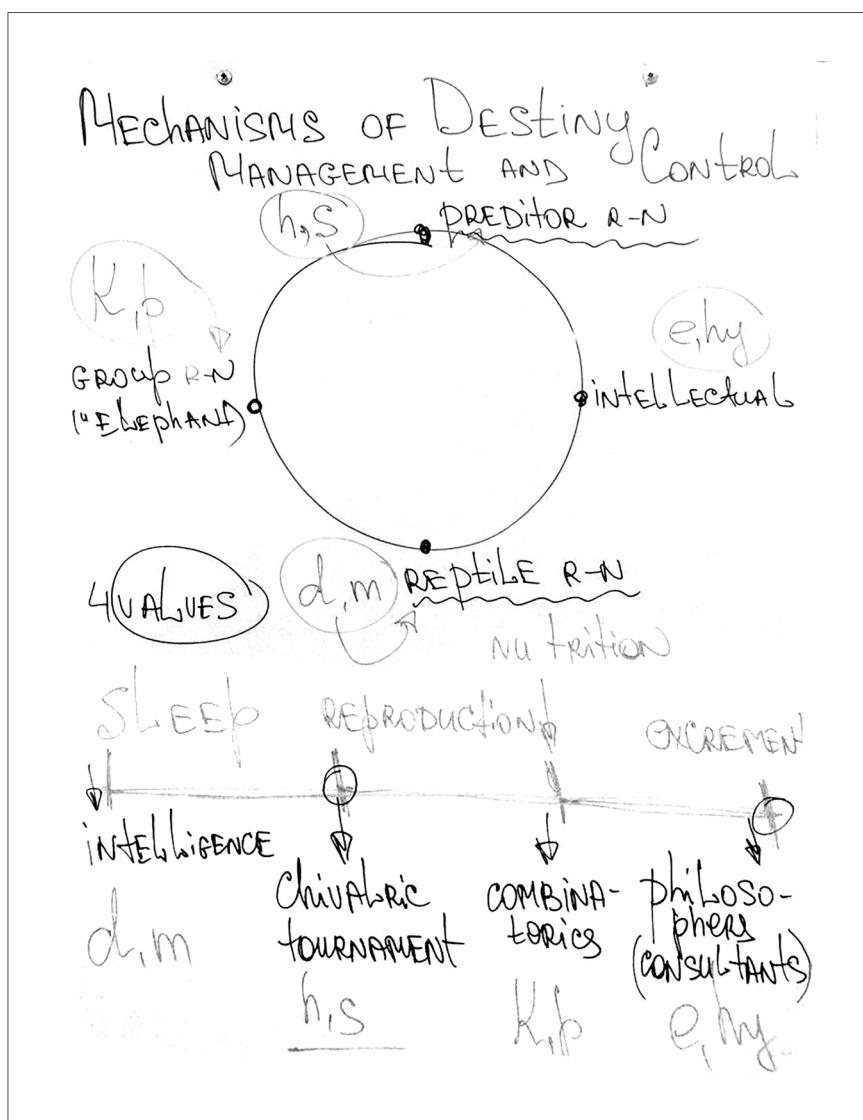 MECHANISMS OF DESTINY
MANAGEMENT AND CONTROL
h,s
PREDITOR R-N
K,p
e,hy
GROUP R-N
("ELEPHANT)
INTELLECTUAL
4 VALUES
d,m
REPTILE R-N
NUTRITION
SLEEP
REPRODUCTION
EXCREMEN
INTELLIGENCE
CHIVALRIC
TOURNAMENT
COMBINA-
TORICS
PHILOSO-
PHERS
(CONSULTANTS)
d,m
h,s
K,p
e,hy